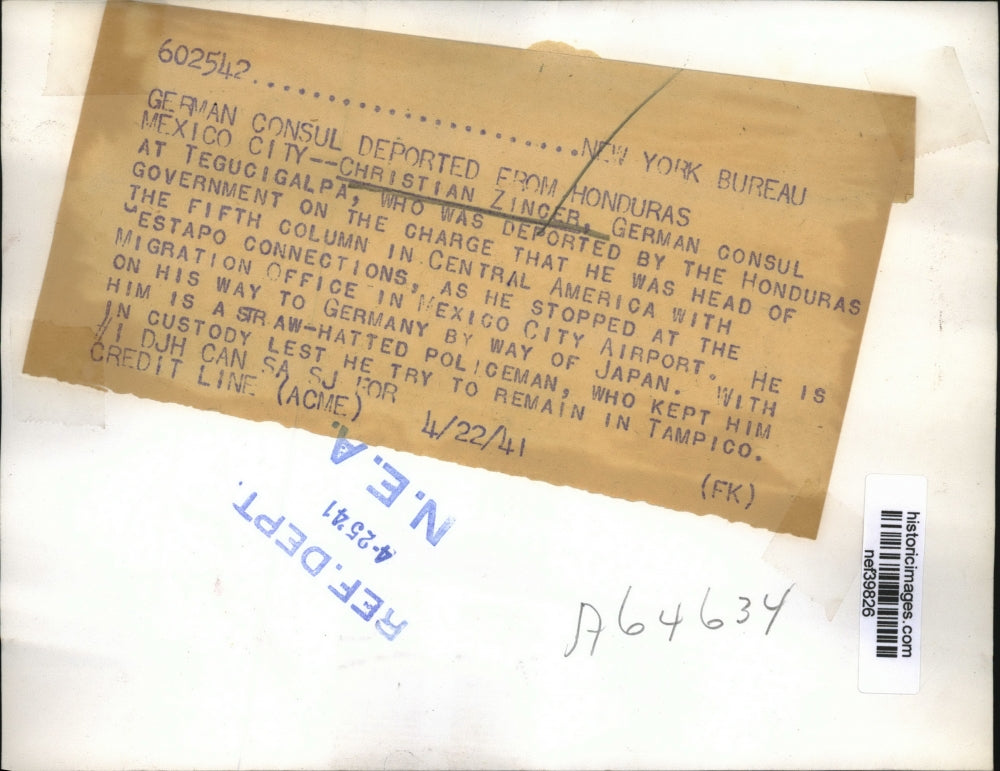 602542..............................NEW YORK BUREAU
GERMAN CONSUL DEPORTED FROM HONDURAS
MEXICO CITY--CHRISTIAN ZINCER, GERMAN CONSUL
AT TEGUCIGALPA, WHO WAS DEPORTED BY THE HONDURAS
GOVERNMENT ON THE CHARGE THAT HE WAS HEAD OF
THE FIFTH COLUMN IN CENTRAL AMERICA WITH
GESTAPO CONNECTIONS, AS HE STOPPED AT THE
MIGRATION OFFICE IN MEXICO CITY AIRPORT. HE IS
ON HIS WAY TO GERMANY BY WAY OF JAPAN. WITH
HIM IS A STRAW-HATTED POLICEMAN, WHO KEPT HIM
IN CUSTODY LEST HE TRY TO REMAIN IN TAMPICO.
#1 DJH CAN SA SJ FOR
CREDIT LINE (ACME) 4/22/41 (FK)
N.E.A.
4-25'41
REF. DEPT.
A64634
historicimages.com
nef39826